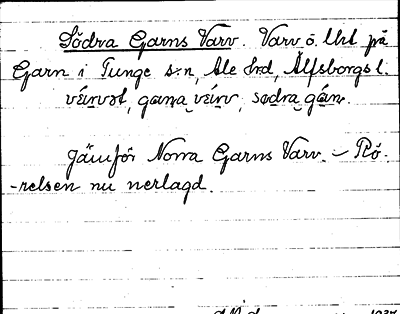 Södra Garns Varv. Varv o. Uxl på
Garn i Tunge s:n, Ale hrd, Älfsborgs l.
vérvət, gana vérv, sødra gán.
Jämför Norra Garns Varv. – Rö-
-relsen nu nerlagd.